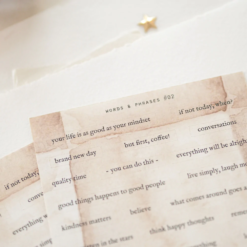 WORDS & PHRASES 002
your life is as good as your mindset
if not today, when
brand new day
but first, coffee!
conversations
quality time
- you can do this -
everything will be alright
good things happen to good people
live simply, laugh
kindness matters
believe
what comes around goes
in the stars
think happy thoughts
if not today,
conver
everything w